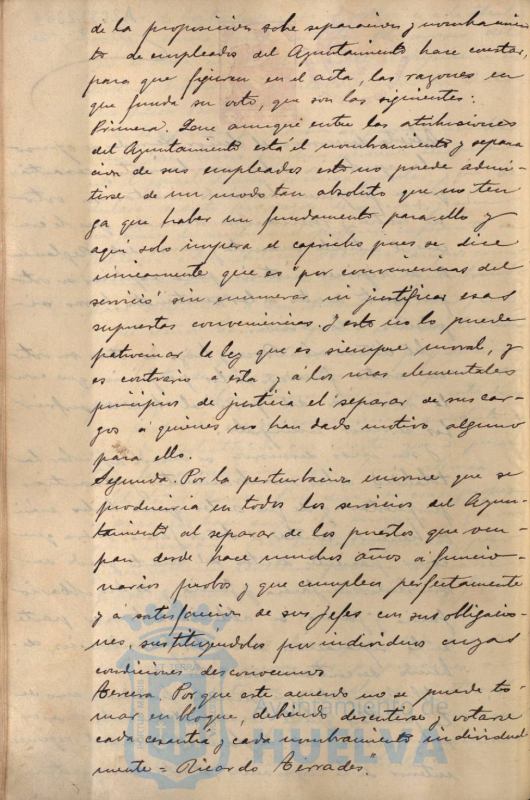 de la proposición sobre separación y nombramien
to de empleados del Ayuntamiento hace constar,
para que figuren en el acta, las razones en
que funda su voto, que son las siguientes:
Primera. Que aunque entre las atribuciones
del Ayuntamiento está el nombramiento y separa
ción de sus empleados esto no puede admi-
tirse de un modo tan absoluto que no ten
ga que haber un fundamento para ello y
aquí solo impera el capricho pues se dice
únicamente que es "por conveniencias del
servicio" sin enumerar ni justificar esas
supuestas conveniencias. Y esto no lo puede
patrocinar la ley que es siempre moral, y
es contrario a ésta y á los mas elementales
principios de justicia el separar de sus car-
gos á quienes no han dado motivo alguno
para ello.
Segunda. Por la perturbación enorme que se
produciría en todos los servicios del Ayun-
tamiento al separar de los puestos que ocu-
pan desde hace muchos años á funcio-
narios probos y que cumplen perfectamente
y á satisfacción de sus jefes con sus obligacio-
nes, sustituyéndolos por individuos cuyas
condiciones desconocemos
Tercera. Porque este acuerdo no se puede to-
mar en bloque, debiendo discutirse y votarse
cada cesantía y cada nombramiento individual
mente = Ricardo Terrades."
Ayuntamiento de
HUELVA